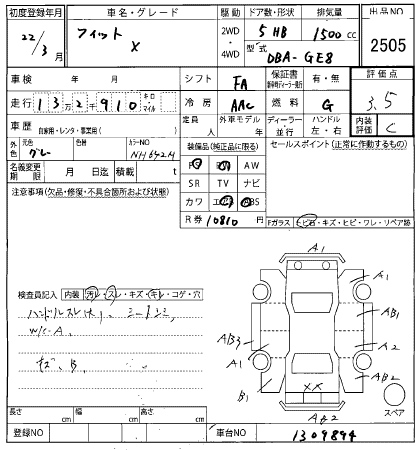 初度登録年月 車名・グレード 駆動 ドア数・形状 排気量 出品NO
22/3月 フィット X 2WD・4WD 5 HB 1500cc 2505
型式 DBA-GE8
車検 年 月 シフト FA 保証書 有・無 評価点
走行 13万2千910 キロ・マイル 冷房 AAC 燃料 G 3.5
車歴 自家用・レンタ・事業用( ) 定員 人 外車モデル 年 ディーラー・並行 ハンドル 左・右 内装評価 C
外色 元色 グレー 色替 カラーNO NH642M 装備品(純正品に限る) セールスポイント(正常に作動するもの)
名義変更期限 月 日迄 積載 t AW
SR TV ナビ
注意事項(欠品・修復・不具合箇所および状態) カワ エアB ABS
R券 10810円
Fガラス トビ石・キズ・ヒビ・ワレ・リペア跡
A1
A1
AB1
検査員記入 内装 汚レ・スレ・キズ・キレ・コゲ・穴
ハンドルスレ大、シートシミ、
W/C-A、
キズ、B、
AB3 A2
A1 AB2
B1 XX
AB2 スペア
長さ cm 幅 cm 高さ cm
登録NO 車台NO 1309894